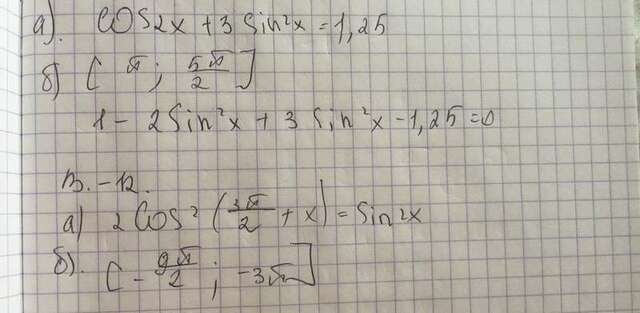 а). cos2x + 3 sin²x = 1,25
б) [ π ; 5π/2 ]
1 - 2 sin²x + 3 sin²x - 1,25 = 0
В. - 12.
а) 2cos² (3π/2 + x) = sin2x
б). [ - 9π/2 ; -3π ]